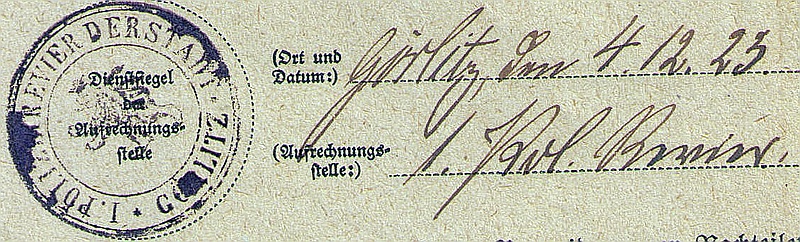 I. POLIZEIREVIER DER STADT GÖRLITZ *
Dienstsiegel
der
Aufrechnungs-
stelle
(Ort und
Datum:) Görlitz, den 4.12.23.
(Aufrechnungs-
stelle:) 1. Pol. Revier.